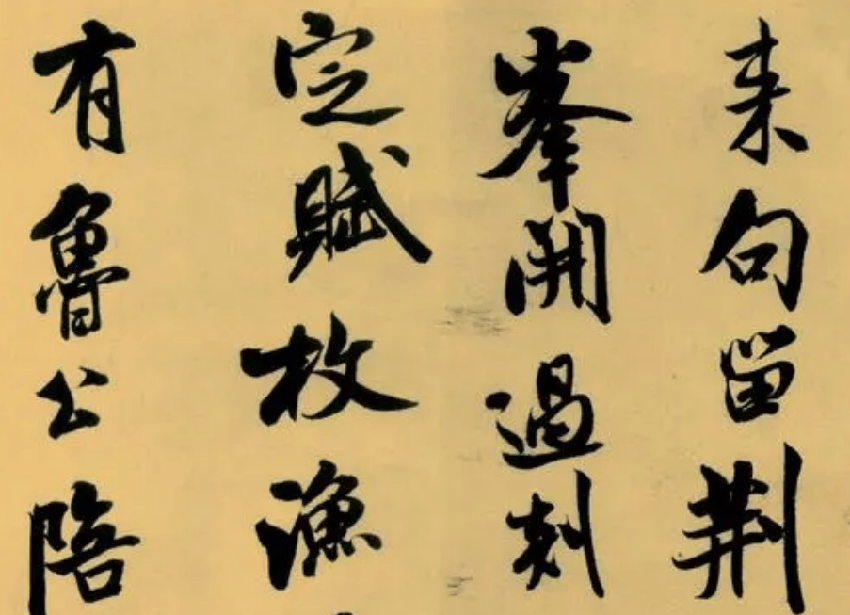 来句留荆
峯開過剡
定賦枚漁
有魯公陪